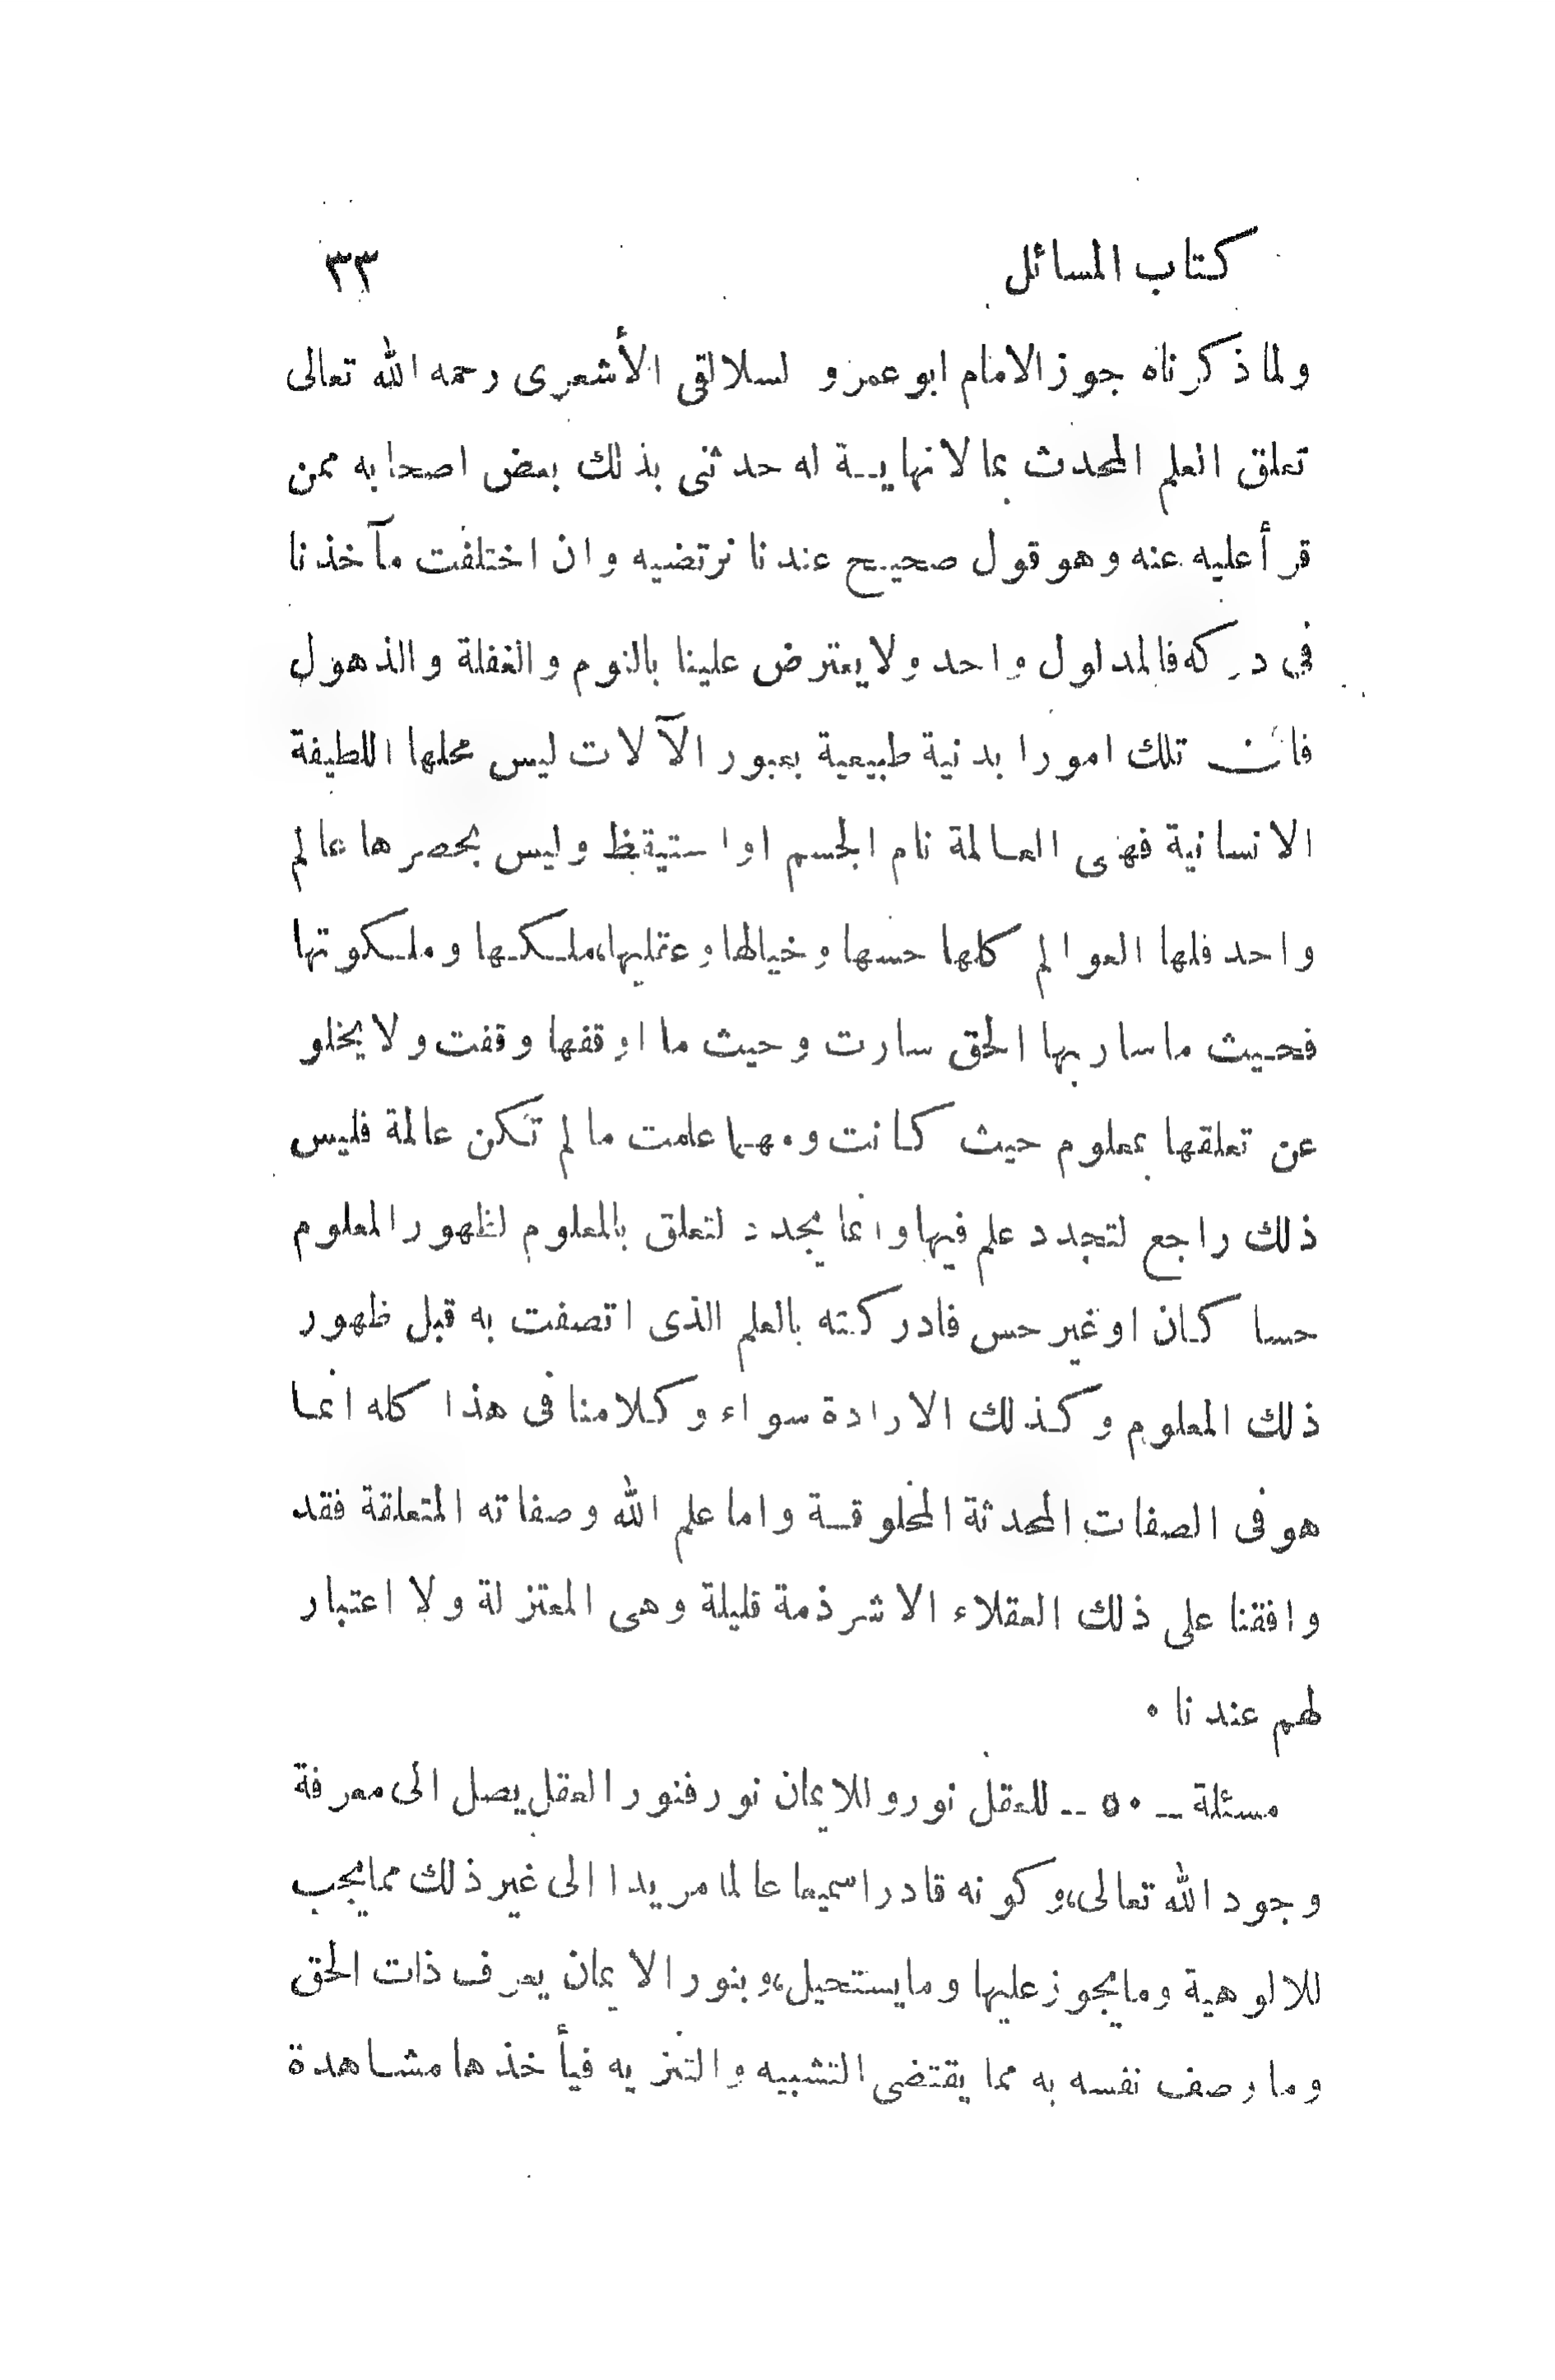 كتاب المسائل ٣٣
ولما ذكرناه جوز الامام ابو عمرو لسلالقى الأشعرى رحمه الله تعالى
تعلق العلم المحدث بما لا نهاية له حدثنى بذلك بعض اصحابه ممن
قرأ عليه عنه وهو قول صحيح عندنا نرتضيه وان اختلفت مآخذنا
في دركه فالمدلول واحد ولا يعترض علينا بالنوم والغفلة والذهول
فان تلك امورا بدنية طبيعية بعبور الآلات ليس محلها اللطيفة
الانسانية فهى العالمة نام الجسم او استيقظ وليس بحصرها عالم
واحد فلها العوالم كلها حسها وخيالها وعقليها، ملكها وملكوتها
فحيث ما سار بها الحق سارت وحيث ما اوقفها وقفت ولا يخلو
عن تعلقها بمعلوم حيث كانت ومهما علمت ما لم تكن عالمة فليس
ذلك راجع لتجدد علم فيها وانما يجدد لتعلق بالمعلوم لظهور المعلوم
حسا كان او غير حس فادركته بالعلم الذى اتصفت به قبل ظهور
ذلك المعلوم وكذلك الارادة سواء وكلامنا فى هذا كله انما
هو فى الصفات المحدثة المخلوقة واما علم الله وصفاته المتعلقة فقد
وافقنا على ذلك العقلاء الا شرذمة قليلة وهى المعتزلة ولا اعتبار
لهم عندنا ٠
مسئلة ــ ٥٠ ــ للعقل نور وللايمان نور فنور العقل يصل الى معرفة
وجود الله تعالى، وكونه قادرا سميعا عالما مريدا الى غير ذلك مما يجب
للالوهية وما يجوز عليها وما يستحيل، وبنور الايمان يعرف ذات الحق
وما وصف نفسه به مما يقتضى التشبيه والتنزيه فيأخذها مشاهدة